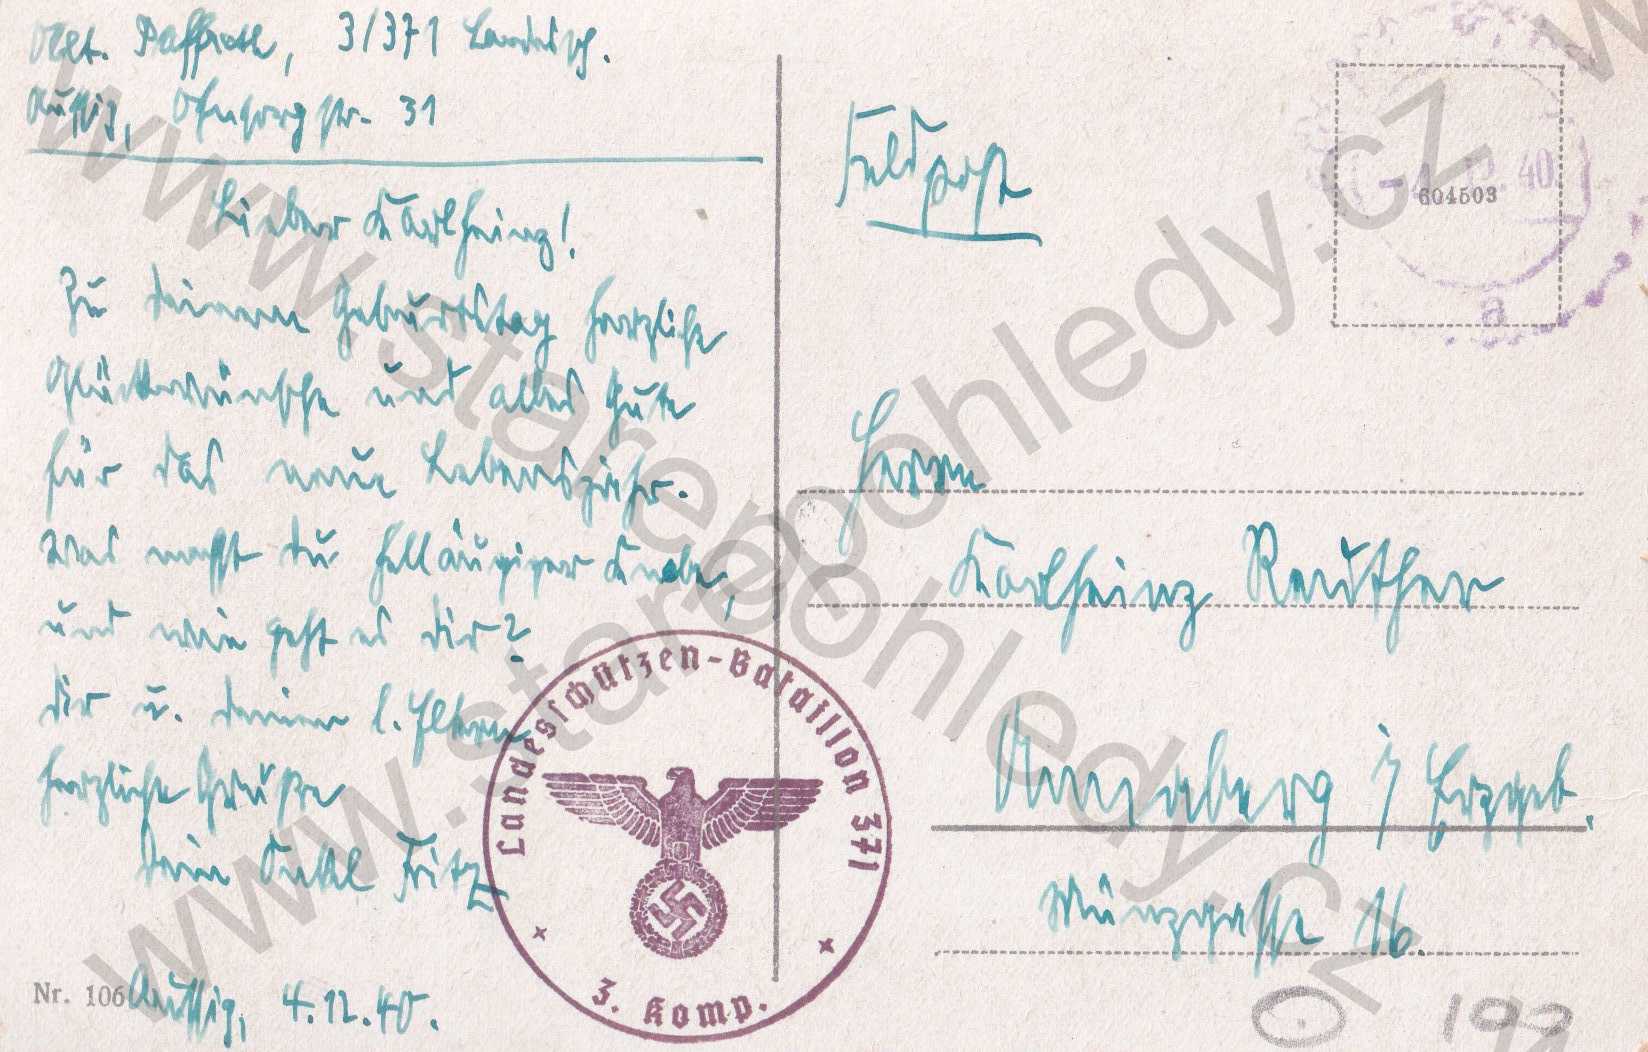 Oblt. Paffrath, 3/371 Landessch.
Aussig, Ohnsorgstr. 31
Lieber Karlheinz!
Zu deinem Geburtstag herzliche
Glückwünsche und alles Gute
für das neue Lebensjahr.
Was machst du helläugiger Knabe,
und wie geht es dir?
Dir u. deinen l. Eltern
herzliche Grüße
dein Onkel Fritz
Aussig, 4.12.40.
Nr. 106
Feldpost
604503
40
a
Herrn
Karlheinz Reuther
Annaberg i/ Erzgeb.
Münzgasse 16.
Landesschützen-Bataillon 371
3. Komp.
192
www.starepohledy.cz
www.starepohledy.cz